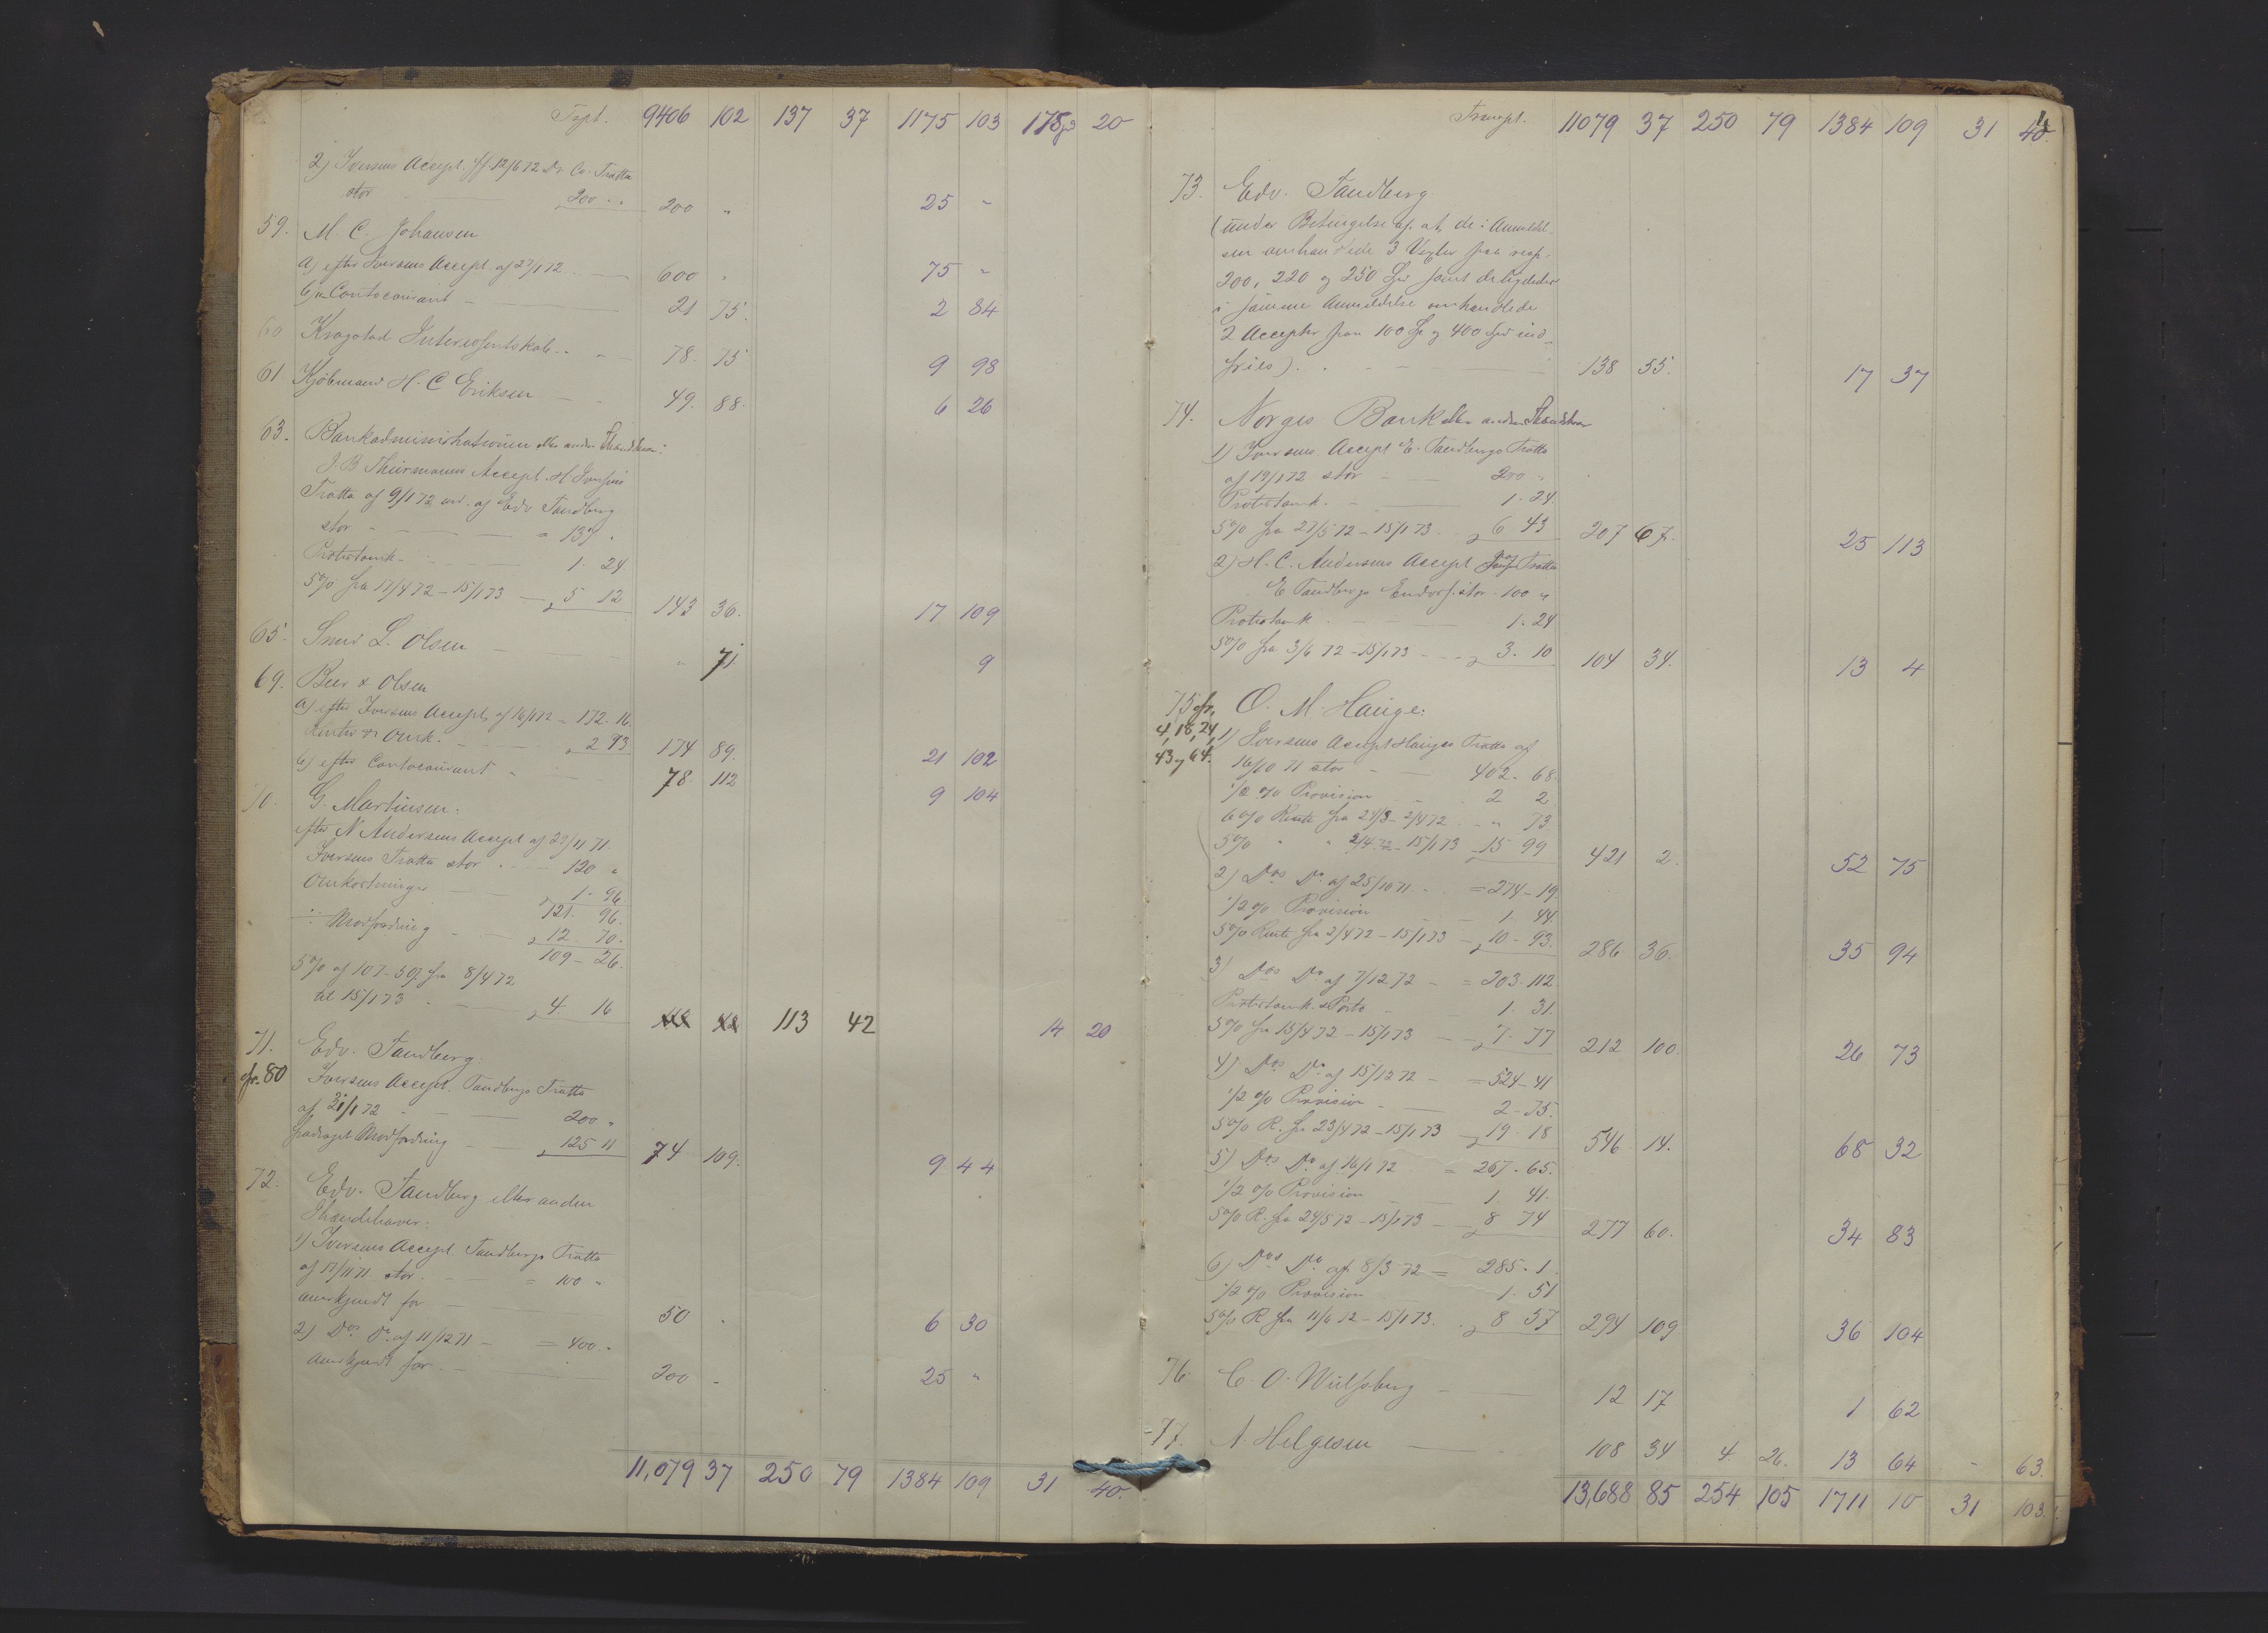 Tspt. 9406 102 137 37 1175 103 17 20
2) Iversens Accept. 12/6 72 Tratta
stor 200 " 200 " 25 "
59. M. C. Johansen
a) efter Iversens Accept af 27/1 72 600 " 75 "
b) " Contocourant 21 75. 2 84
60 Kragstad Interessentskab 78. 75 9 98
61 Kjöbmand H. C Eriksen 49. 88. 6 26
63. Bankadministrationen eller anden Ihændehaver:
J. B Thürmanns Accept H Iversens
Tratta af 9/1 72 end. af Edv Tandberg
stor = 137 "
Protestomk. 1. 24
5% fra 17/4 72 - 15/1 73 5 12 143 36. 17 109
65. Smed L. Olsen " 71 9
69. Beer & Olsen
a) efter Iversens Accept af 16/1 72 = 172. 16.
Renter & Omk. 2 93 174 89. 21 102
b) efter Contocourant 78. 112 9 104
70. G. Martinsen.
efter N Andersens Accept af 29/11 71
Iversens Tratta stor 120 "
Omkostninger 1. 96
121. 96.
÷ Modfordring 12. 70.
109 - 26.
5% af 107 - 50 fra 8/4 72
til 15/1 73 4 16 113 42 14 20
71. Edv. Tandberg.
cfr. 80 Iversens Accept. Tandbergs Tratta
af 31/1 72 200 "
fradraget Modfordring 125 11 74 109. 9 44
72. Edv. Tandberg eller anden
Ihændehaver:
1) Iversens Accept Tandbergs Tratta
af 17/11 71 stor = 100 "
anerkjendt for 50 " 6 30
2) Do Do af 11/12 71 = 400 "
anerkjendt for 200 " 25 "
11,079 37 250 79 1384 109 31 40.
Transpt. 11079 37 250 79 1384 109 31 40
73. Edv. Tandberg
(under Betingelse af at de i Anmeldel-
sen omhandlede 3 Vexler paa resp.
200, 220 og 250 Spd samt de ligeledes
i samme Anmeldelse omhandlede
2 Accepter paa 100 Spd og 400 Spd ind-
fries). 138 55. 17 37
74. Norges Bank eller anden Ihændehaver
1) Iversens Accept E. Tandbergs Tratta
af 19/1 72 stor 200 "
Protestomk. 1. 24.
5% fra 27/5 72 - 15/1 73 6 43 207 67. 25 113
2) H. C. Andersens Accept Tratta
E Tandbergs Endoss. stor 100 "
Protestomk 1. 24
5% fra 3/6 72 - 15/1 73 3. 10 104 34. 13 4
75 cfr. O. M. Hauge:
4, 18, 24, 1) Iversens Accept Hauges Tratta af
43 og 64. 16/10 71 stor 402. 68.
1/2 % Provision 2 2
6% Rente fra 24/3 - 2/4 72 " 73
5% " " 2/4 72 - 15/1 73 15 99 421 2. 52 75
2) Dos Do af 25/10 71 = 274 - 19.
1/2 % Provision 1. 44.
5% Rente fra 2/4 72 - 15/1 73 10 - 93. 286 36. 35 94
3) Dos Do af 7/12 72 = 203. 112.
Protestomk. & Porto 1. 31.
5% fra 15/4 72 - 15/1 73 7. 77 212 100. 26 73
4) Dos Do af 15/12 72 = 524 - 41
1/2 % Provision 2 - 75.
5% R. fra 23/4 72 - 15/1 73 19. 18 546 14. 68 32
5) Dos Do af 16/1 72 = 267. 65.
1/2 % Provision 1. 41.
5% R. fra 24/5 72 - 15/1 73 8 74 277 60. 34 83
6) Dos Do af 8/3 72 = 285. 1.
1/2 % Provision 1. 51
5% R fra 11/6 72 - 15/1 73. 8 57 294 109 36 104
76. C. O. Wulfsberg 12 17 1 62
77. A. Helgesen 108 34 4. 26. 13 64 - 63.
13,688 85 254 105 1711 10 31 103.